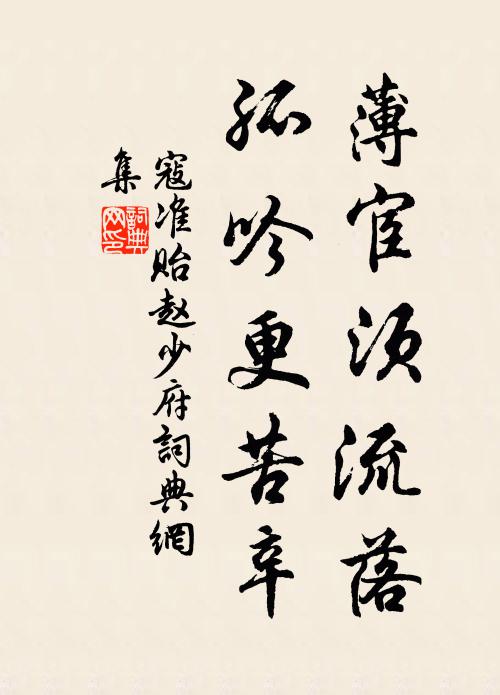 薄宦须流落
孤吟更苦辛
寇准贻赵少府詞典網
集
詞典
网印